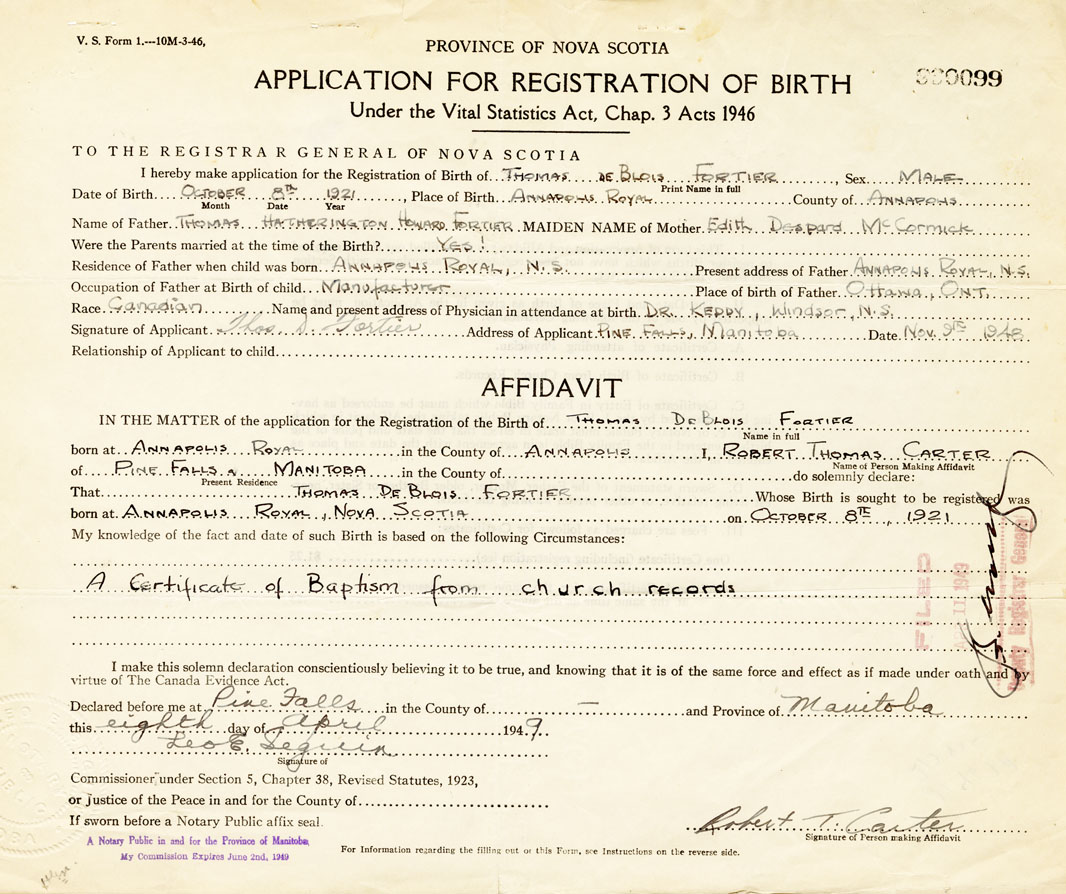 V. S. Form 1.---10M-3-46,
PROVINCE OF NOVA SCOTIA
APPLICATION FOR REGISTRATION OF BIRTH
Under the Vital Statistics Act, Chap. 3 Acts 1946
TO THE REGISTRAR GENERAL OF NOVA SCOTIA
I hereby make application for the Registration of Birth of THOMAS DE BLOIS FORTIER, Sex MALE
Print Name in full
Date of Birth OCTOBER 8TH 1921, Place of Birth ANNAPOLIS ROYAL County of ANNAPOLIS
Month Date Year
Name of Father THOMAS HATHERINGTON HOWARD FORTIER MAIDEN NAME of Mother Edith Despard McCormick
Were the Parents married at the time of the Birth? YES!
Residence of Father when child was born ANNAPOLIS ROYAL, N.S. Present address of Father ANNAPOLIS ROYAL, N.S.
Occupation of Father at Birth of child Manufacturer Place of birth of Father OTTAWA, ONT.
Race Canadian Name and present address of Physician in attendance at birth DR. KEDDY, Windsor, N.S.
Signature of Applicant Thos D. Fortier Address of Applicant PINE FALLS, Manitoba Date Nov. 9th 1948
Relationship of Applicant to child
AFFIDAVIT
IN THE MATTER of the application for the Registration of Birth of THOMAS DE BLOIS FORTIER
Name in full
born at ANNAPOLIS ROYAL in the County of ANNAPOLIS I, ROBERT THOMAS CARTER
Name of Person Making Affidavit
of PINE FALLS, MANITOBA in the County of do solemnly declare:
Present Residence
That THOMAS DE BLOIS FORTIER Whose Birth is sought to be registered was
born at ANNAPOLIS ROYAL, NOVA SCOTIA on OCTOBER 8TH, 1921
My knowledge of the fact and date of such Birth is based on the following Circumstances:
A Certificate of Baptism from church records
FILED
11 1949
Registrar General
I make this solemn declaration conscientiously believing it to be true, and knowing that it is of the same force and effect as if made under oath and by
virtue of The Canada Evidence Act.
Declared before me at Pine Falls in the County of — and Province of Manitoba
this eighth day of April 1949.
Leo E. Seguin
Signature of
Commissioner under Section 5, Chapter 38, Revised Statutes, 1923,
or Justice of the Peace in and for the County of
If sworn before a Notary Public affix seal.
Robert T. Carter
Signature of Person making Affidavit
A Notary Public in and for the Province of Manitoba
My Commission Expires June 2nd, 1949
For Information regarding the filling out of this Form, see Instructions on the reverse side.